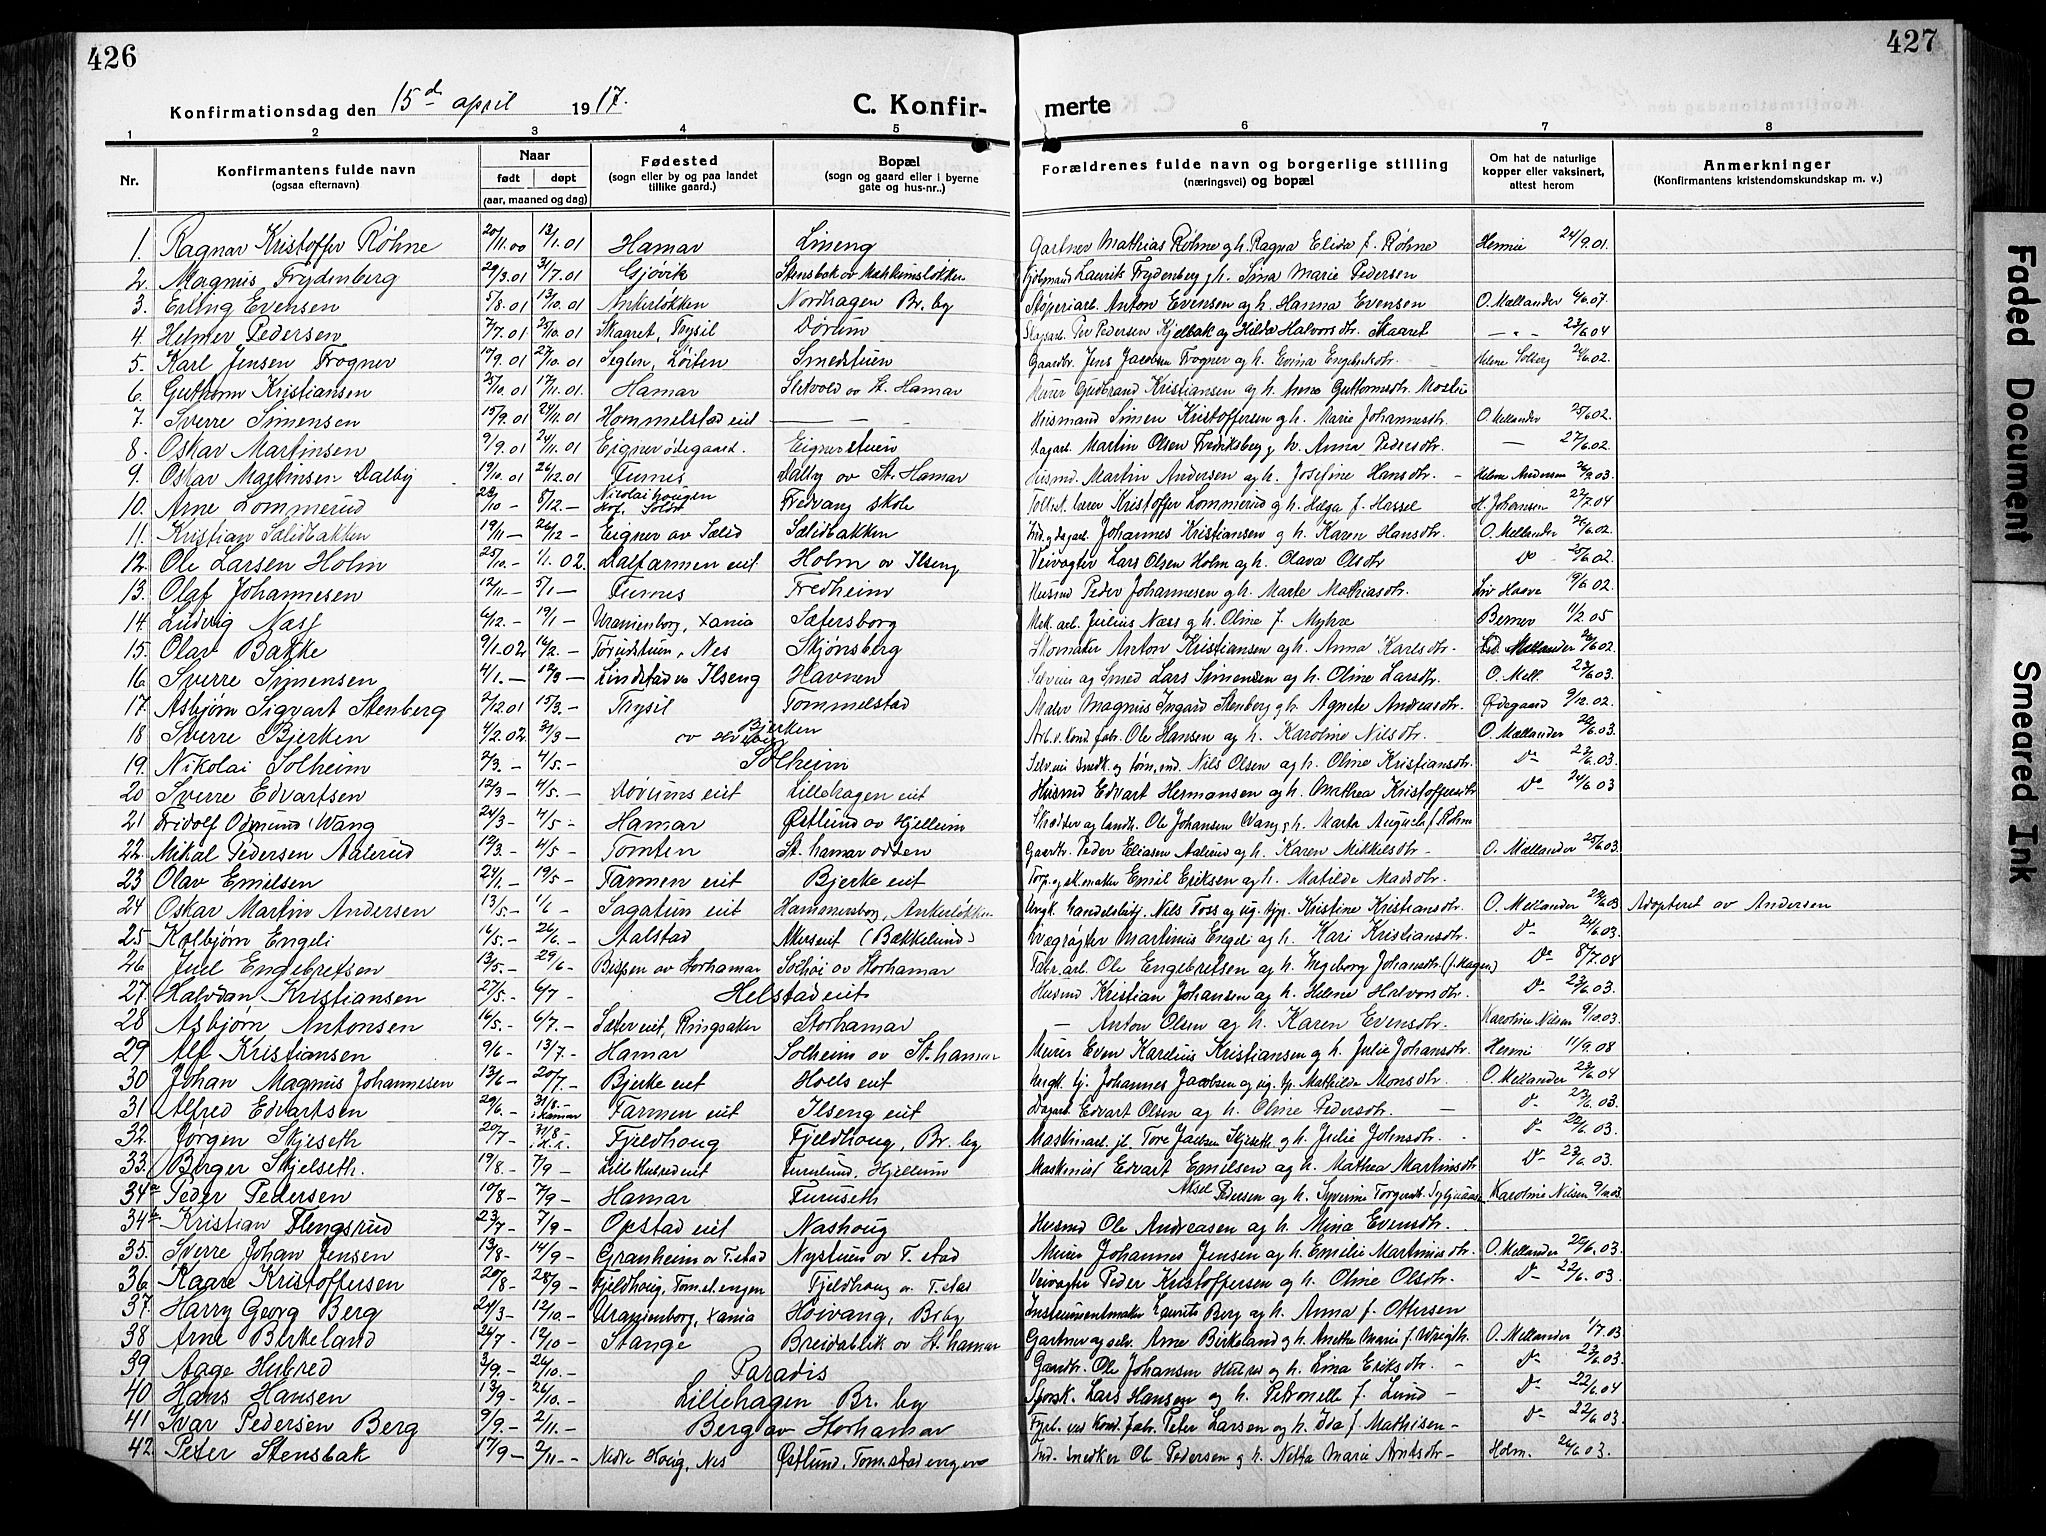 426
427
Konfirmationsdag den 15de april 1917.
C. Konfir-
merte
1 2 3 4 5 6 7 8
Nr.
Konfirmantens fulde navn
(ogsaa efternavn)
Naar
født døpt
(aar, maaned og dag)
Fødested
(sogn eller by og paa landet
tillike gaard.)
Bopæl
(sogn og gaard eller i byerne
gate og hus-nr..)
Forældrenes fulde navn og borgerlige stilling
(næringsvei) og bopæl
Om hat de naturlige
kopper eller vaksinert,
attest herom
Anmerkninger
(Konfirmantens kristendomskundskap m. v.)
1. Ragnar Kristoffer Røhne 20/11.00 13/1.01 Hamar Lineng Gartner Mathias Røhne gh. Ragna Elida f. Røhne 24/9.01.
2. Magnus Frydenberg 29/3.01 31/7.01 Gjøvik Laurits Frydenberg gh. Lina Marie Pedersen
3. Erling Evensen 5/8.01 13/10.01 Ankerløkken Nordhagen Br. by Støperiarb. Anton Evensen og h. Hanna Evensen O. Mellander 6/6.07.
4. Helmer Pedersen 7/7.01 25/10.01 Skaaret, Trysil Dørum Per Pedersen Kjelbak og Hilda Halvorsdtr. Skaaret — " — 23/6 04
5. Karl Jensen Frogner 10/9.01 27/10.01 Seglen, Løiten Smedstuen Gaardbr. Jens Jacobsen Frogner og h. Emma Engebretsdtr. Helene Solberg 24/6.02.
6. Guthorm Kristiansen 25/10.01 17/11.01 Hamar Sletvold ov St. Hamar Murer Gudbrand Kristiansen og h. Anna Guttormsdtr. Moslie
7. Sverre Simensen 15/9.01 24/11.01 Hommelstad eiet — — Husmand Simen Kristoffersen gh. Marie Johannesdtr. O. Mellander 25/6 02.
8. Oskar Martinsen 9/9.01 24/11.01 Eigner ødegaard. Eignerstuen Dagarb. Martin Olsen Fredriksberg g h. Anna Pedersdtr. — 27/6.02.
9. Oskar Martinsen Dalby 19/10.01 26/12.01 Furnes Dalby ov St. Hamar Husmd. Martin Andersen og h. Josefine Hansdtr. — Helene Andersen
10. Arne Lommerud 28/10 – 8/12. – Nicolai hougen Fredvang skole Kristoffer Lommerud g h. Helga f. Hassel H. Johansen 22/7.04
11. Kristian Sælidbakken 19/11 – 26/12 – Eigner av Sælid Sælidbakken Johannes Kristiansen g h. Karen Hansdtr. O. Mellander 26/6.02.
12. Ole Larsen Holm 25/10. – 1/1. 02. Dalfarmen eiet Holm ov Ilseng Veivogter Lars Olsen Holm og h. Olava Olsdtr Do 25/6 02.
13. Olaf Johannesen 12/11. – 5/1 – Furnes Fredheim Husmd Peder Johannesen g h. Marte Mathiasdtr. Liv Haave 19/6 02.
14. Ludvig Næss 6/12. – 19/1 – Uranienborg, Xania Sætersborg Mek. arb. Julius Næss g h. Oline f. Myhre Berner 11/2.05
15. Olav Bakke 9/1.02 16/2. – Torudstuen, Nes Skjønsberg Skomaker Anton Kristiansen og h. Anna Karlsdtr. Mellander 26/6 02.
16. Sverre Simensen 4/1. – 12/3 – Lindstad ov Ilseng Havnen Selveier og Smed Lars Simensen og h. Oline Larsdtr. O. Mell. 23/6.03.
17. Asbjørn Sigvart Stenberg 2/12.01 15/3. – Trysil Tommelstad Maler Magnus Ingard Stenberg g h. Agnete Andreasdtr. Ødegaard 9/12.02.
18 Sverre Bjerken 4/2.02. 31/3 – Bjerken Arb. v. Kond. fabr. Ole Hansen og h. Karoline Nilsdtr. O. Mellander 22/6.03.
19. Nikolai Solheim 2/3. – 4/5. – Solheim Nils Olsen og h. Oline Kristiansdtr. Do 23/6.03.
20 Sverre Edvartsen 12/3 – 4/5. – Dørums eiet Lillehagen eiet Husmd Edvart Hermansen og h. Mathea Kristoffersdtr Do 24/6 03
21 Fridolf Odmund Wang 24/3 – 4/5 – Hamar Østlund ov Hjellum Skrædder og landh. Ole Johansen Wang g h. Marta Augusta f. Røhne
22. Mikal Pedersen Aalerud 12/3. – 4/5 – Tomten St. hamar odden Gaardbr. Peder Eliasen Aalerud og h. Karen Mikkelsdtr – O. Mellander 25/6 03.
23 Olav Emilsen 24/1. – 19/5 – Farmen eiet Bjerke eiet Torp. og sk. maker Emil Eriksen og h. Matilde Madsdtr.
24 Oskar Martin Andersen 13/5. – 1/6 – Sagatun eiet Hammersborg, Ankerløkken Ungk. handelsbtj. Nils Foss og ug. pige Kristine Kristiansdtr. O. Mellander 22/6 03 Adopteret av Andersen
25 Kolbjørn Engeli 16/5. – 26/6. – Stalstad Akerseiet (Bækkelund) Martinius Engeli og h. Kari Kristiansdtr. Do 24/6 03.
26 Juel Engebretsen 13/5. – 29/6 – Bispen ov Storhamar Solhøi ov Storhamar Fabr. arb. Ole Engebretsen og h. Ingeborg Johansdtr. (f. Hagen) Do 8/7.08
27. Halvdan Kristiansen 27/5. – 6/7 – Helstad eiet Husmd Kristian Johansen og h. Helene Halvorsdtr. Do 23/6 03.
28 Asbjørn Antonsen 16/5. – 6/7. – Sæter eiet, Ringsaker Storhamar — Anton Olsen og h. Karen Evensdtr. Karoline Nilsen 9/10.03.
29 Alf Kristiansen 9/6 – 13/7. – Hamar Solheim ov St. hamar Murer Even Karelius Kristiansen g h. Julie Johansdtr. 11/9.08
30 Johan Magnus Johannesen 13/6 – 20/7. – Bjerke eiet Hoels eiet Ungk. tj. Johannes Jacobsen og ug. tp. Mathilde Monsdtr. O. Mellander 23/6 04
31 Alfred Edvartsen 29/6. – 31/8. – i Hamar Farmen eiet Ilseng eiet Dagarb. Edvart Olsen og h. Oline Pedersdtr. — Do 22/6.03.
32. Jørgen Skjeseth 20/7 – 31/8 – Fjeldhoug Fjeldhoug, Br. by Maskinarb. Tore Jacobsen Skjeseth g h. Julie Johnsdtr. Do 22/6.03.
33. Birger Skjelseth. 19/8. – 7/9 – Lille Hubred eiet Furulund, Hjellum Maskinist Edvart Emilsen og h. Mathea Martinsdtr Do 23/6 03.
34a Peder Pedersen 10/8 – 7/9 – Hamar Furuseth Aksel Pedersen og h. Syverine Torgersdtr. Karoline Nilsen 9/10.03
34b Kristian Flengsrud 23/7 – 7/9 – Opstad eiet Nashoug Husmd Ole Andreasen og h. Mina Evensdtr.
35. Sverre Johan Jensen 13/8. – 14/9 – Granheim ov T. stad Nystuen ov T. stad Murer Johannes Jensen og h. Emilie Martiniusdtr. O. Mellander 22/6.03.
36 Kaare Kristoffersen 20/8 – 28/9 – Fjeldhoug, Tomst. engen Fjeldhoug ov T. stad Veivogter Peder Kristoffersen og h. Oline Olsdtr. Do 22/6. 03.
37. Harry Georg Berg 24/3 – 12/10. – Uranienborg, Xania Hoivang, B. by Instrumentmaker Laurits Berg og h. Anna f. Ottersen
38 Arne Birkeland 26/7 – 12/10 – Stange Breidablik ov St. hamar Gartner og selv. Arne Birkeland g h. Anette Marie f. Wreigth. O. Mellander 1/7.03
39 Aage Hubred 3/9. – 26/10. – Paradis Gaardbr. Ole Johansen Hubred og h. Lina Eriksdtr. – Do 23/6 03.
40 Hans Hansen 13/9 – 26/10. – Lillehagen Br. by Lars Hansen og h. Petronelle f. Lund – Do 22/6 04
41 Ivar Pedersen Berg 9/9. – 2/11. – Berg av Storhamar Peter Larsen og h. Ida f. Mathisen – Do 22/6 03.
42. Peter Stensbak 17/9 – 2/11 – – Nedre Houg, Nes Østlund, Tomstadengen Ind. Snedker Ole Pedersen g h. Netta Marie Arntsdtr – Holm. 26/6 03.
Faded Document
Smeared Ink